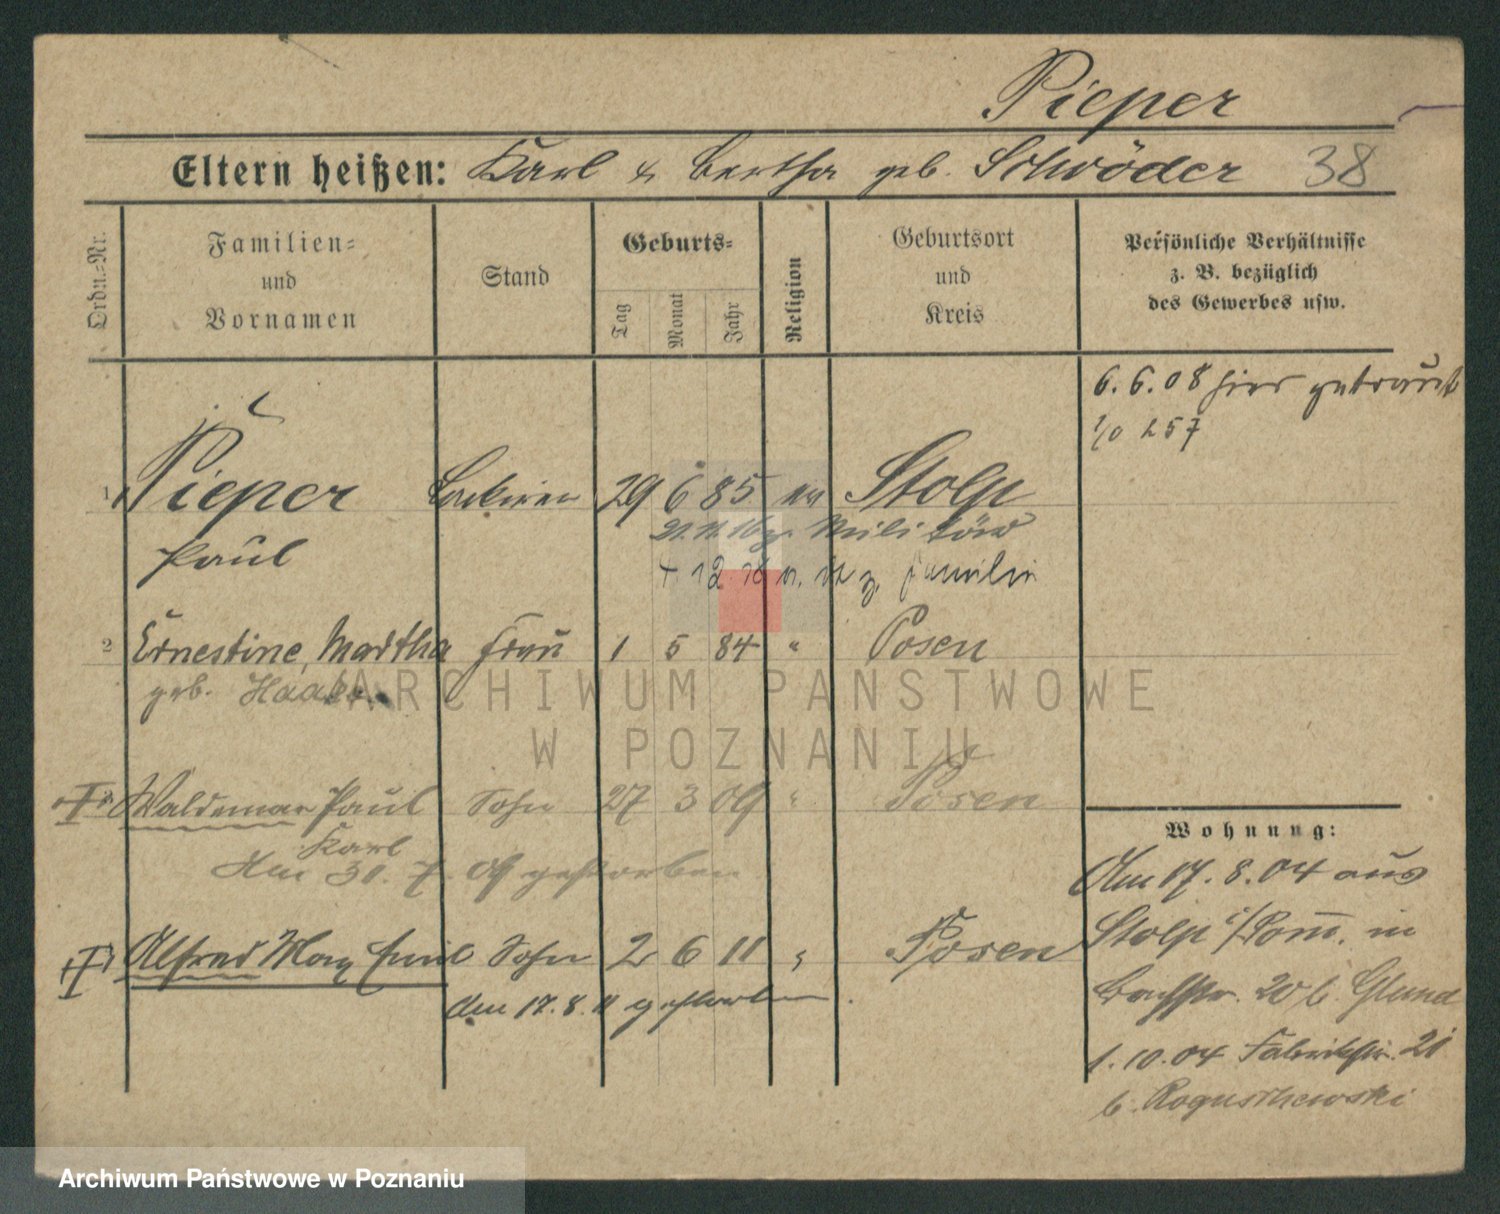 Pieper
Eltern heißen: Karl & Bertha geb. Schröder 38
Ordn.=Nr.
Familien=
und
Vornamen
Stand
Geburts=
Tag
Monat
Jahr
Religion
Geburtsort
und
Kreis
Persönliche Verhältnisse
z. B. bezüglich
des Gewerbes usw.
6. 6. 08 hier getraut
257
1 Pieper 29 6 85 Stolp
Paul
Militär
z. Familie
2 Ernestine, Martha Frau 1 5 84 " Posen
geb. Haake
Waldemar Paul Sohn 27 3 09 " Posen
Karl
Am 30. 7. 09 gestorben
Alfred Max Emil Sohn 2 6 11 " Posen
Am 17. 8. 11 gestorben
Wohnung:
Am 17. 8. 04 aus
Stolp i/Pom. in
20 b.
1. 10. 04 Fabrikstr. 21
b.
ARCHIWUM PAŃSTWOWE
W POZNANIU
Archiwum Państwowe w Poznaniu